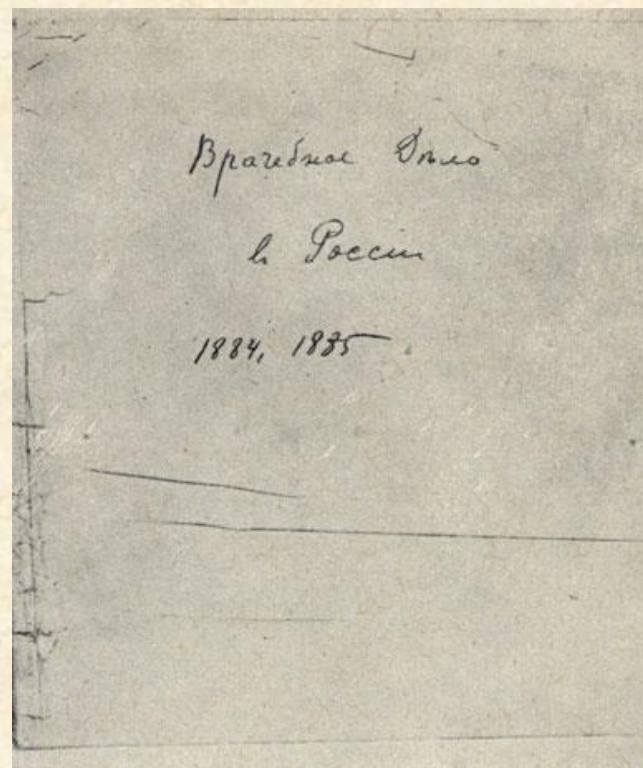 Врачебное Дѣло
въ Россіи
1884, 1885